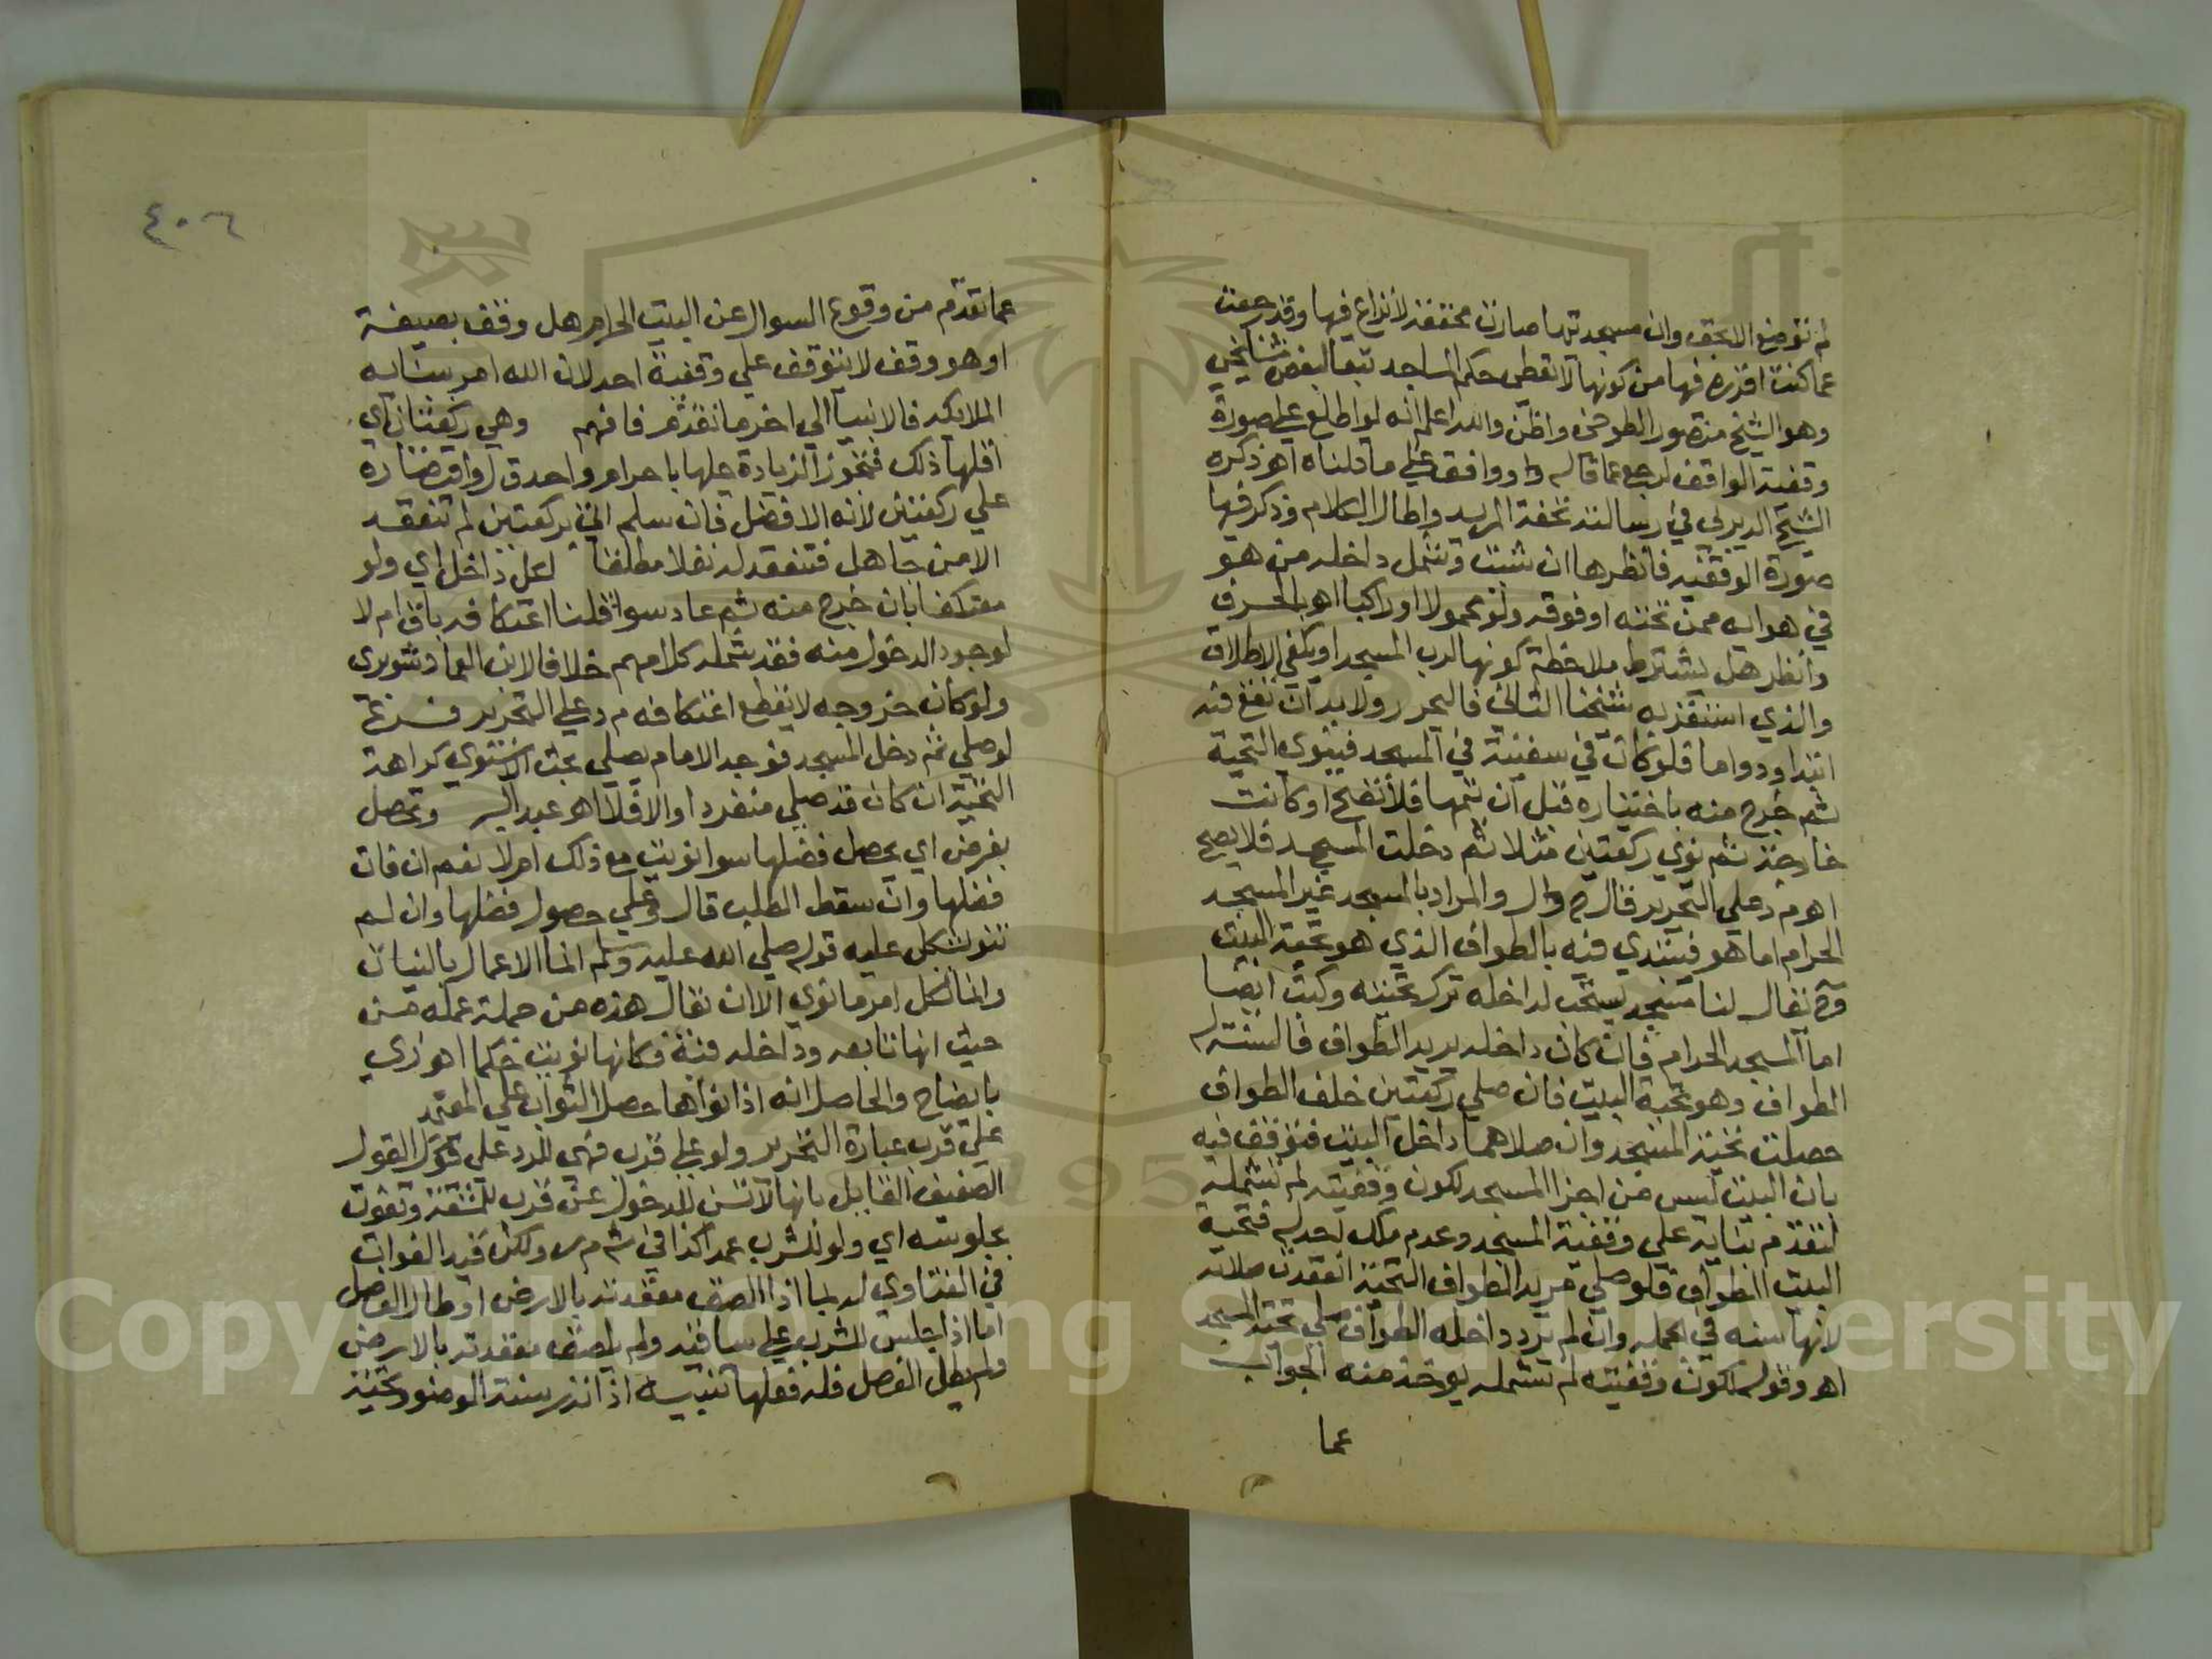 لم توضع الا بحق وان مسجديتها صارت محققة لا نزاع فيها وقد رجعت
عما كنت اقرره فيها من كونها لا تعطى حكم المساجد تبعا لبعض مشايخي
وهو الشيخ منصور الطوخي واظن والله اعلم انه لو اطلع على صورة
وقفية الواقف لرجع عما قاله ووافق على ما قلناه اهـ ذكره
الشيخ الديربي في رسالته تحفة المريد واطال الكلام وذكر فيها
صورة الوقفية فانظرها ان شئت وتشمل داخله من هو
في هوايه ممن تحته او فوقه ولو محمولا او راكبا اهـ بالحرف
وانظر هل يشترط ملاحظة كونها لرب المسجد او يكفي الاطلاق
والذي استقر به شيخنا الثاني فاليحرر ولا بد ان تقع فيه
ابتدا ودواما فلو كان في سفينة في المسجد فينوي التحية
ثم خرج منه باختياره قبل ان يتمها فلا تصح او كانت
خارجة ثم نوي ركعتين مثلا ثم دخلت المسجد فلا يصح
اهـ م د علي التحرير قال ح ل والمراد بالمسجد غير المسجد
الحرام اما هو فيبتدي فيه بالطواف الذي هو تحية البيت
وح يقال لنا مسجد يستحب لداخله ترك تحيته وكتب ايضا
اما المسجد الحرام فان كان داخله يريد الطواف فالسنة له
الطواف وهو تحية البيت فان صلي ركعتين خلف الطواف
حصلت تحية المسجد وان صلاهما داخل البيت فتوقف فيه
بان البيت ليس من اجزا المسجد لكون وقفيته لم تشمله
لتقدم بنايه علي وقفية المسجد وعدم ملك احد له فتحية
البيت الطواف فلو صلي مريد الطواف التحية انعقدت صلاته
لانها سنه في الجمله وان لم يرد داخله الطواف صلي تحية المسجد
اهـ وقوله لكون وقفيته لم تشمله يوخذ منه الجواب
عما
٤٠٦
عما تقدم من وقوع السوال عن البيت الحرام هل وقف بصيغة
او هو وقف لا يتوقف علي وقفية احد لان الله امر ببنايه
الملايكه فالانبيا الي اخر ما تقدم فافهم وهي ركعتان اي
اقلها ذلك فتجوز الزيادة عليها باحرام واحد واقتصاره
علي ركعتين لانه الافضل فان سلم اتي بركعتين لم تنعقد
الا من جاهل فتنعقد له نفلا مطلقا لكل داخل اي ولو
معتكفا بان خرج منه ثم عاد سوا قلنا اعتكافه باق ام لا
لوجود الدخول منه فقد شمله كلامهم خلافا لابن العماد شوبري
ولو كان خروجه لا يقطع اعتكافه م د علي التحرير فرع
لو صلي ثم دخل المسجد فوجد الامام يصلي بحث الاسنوي كراهة
التحية ان كان قد صلي منفردا والا فلا اهـ عبد البر وتحصل
بفرض اي يحصل فضلها سوا نويت مع ذلك ام لا نعم ان فات
فضلها وان سقط الطلب قال وعلي حصول فضلها وان لم
تنو يشكل عليه قوله صلي الله عليه وسلم انما الاعمال بالنيات
وانما لكل امرء ما نوي الا ان يقال هذه من جملة عمله من
حيث انها تابعه وداخله فيه فكانها نويت حكما اهـ ا ز ي
بايضاح والحاصل انه اذا نواها حصل الثواب علي المعتمد
علي قرب عبارة التحرير ولو علي قرب فهي للرد علي القول
الضعيف القايل بانها لا تسن للدخول عن قرب للمشقة وتفوت
بجلوسه اي ولو للشرب عمدا كذا في ش م ر ولكن قيد الفوات
في الفتاوي له بما اذا الصق مقعدته بالارض او طال الفصل
اما اذا جلس للشرب علي ساقيه ولم يلصق مقعدته بالارض
ولم يطل الفصل فله فعلها تنبيه اذا نذر سنة الوضو وتحية